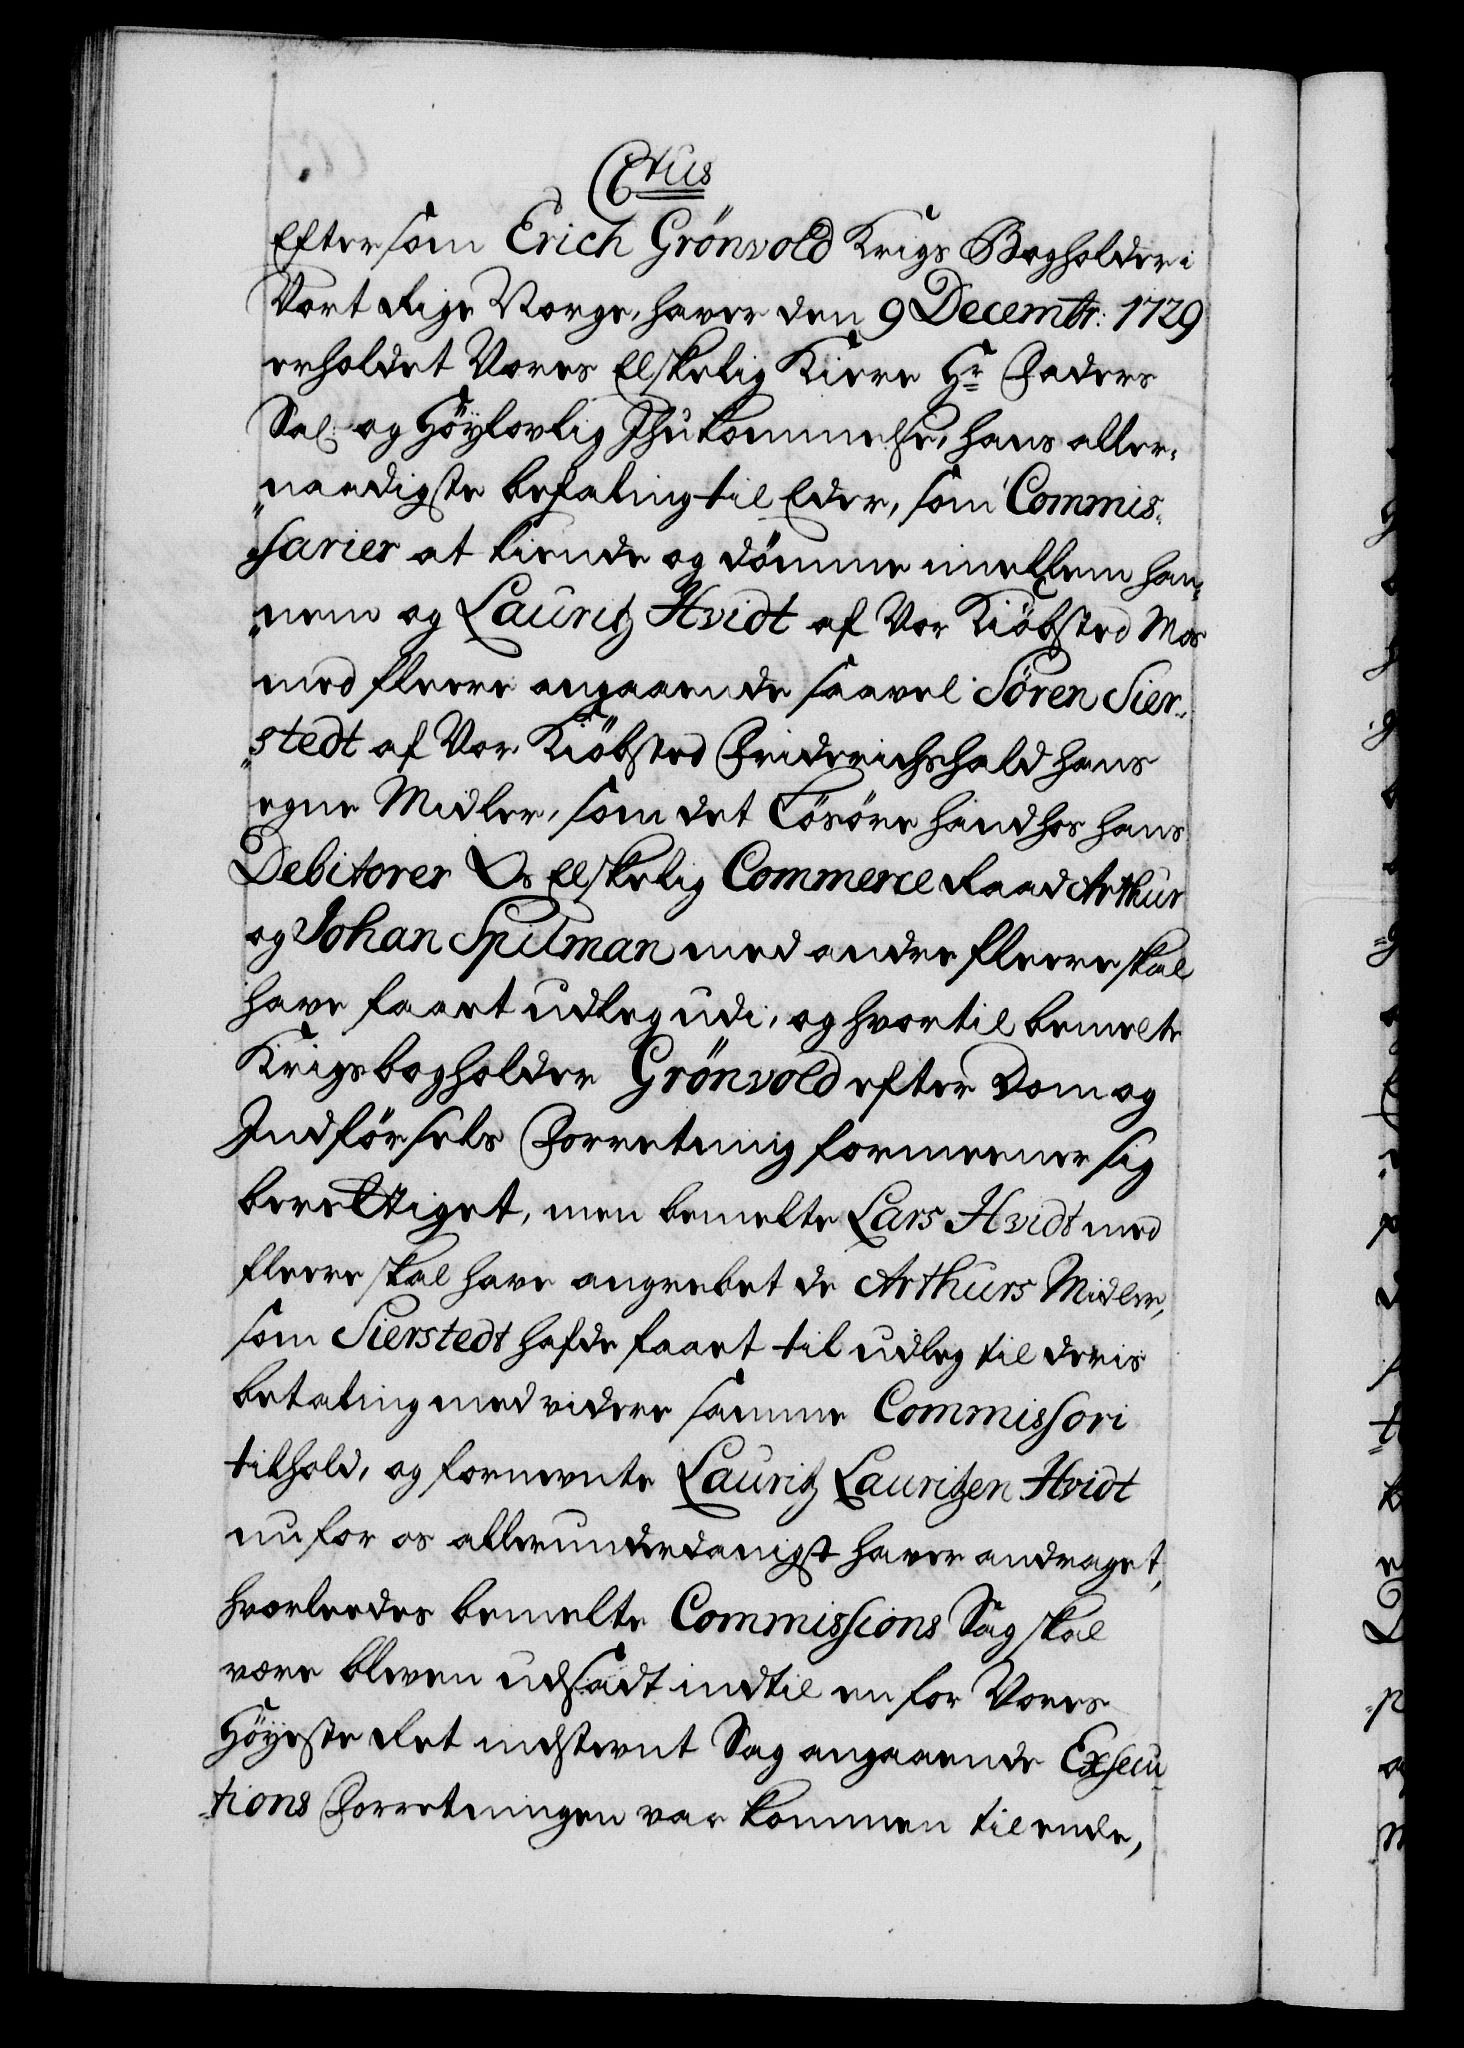 C6tus
Eftersom Erich Grönvold Krigs Bogholder i
Vort Rige Norge, haver den 9 Decembr: 1729
erholdet Vores Elskelig Kiere Hr Faders
Sal: og Höylovlig Ihukommelse, hans aller-
naadigste befaling til Eder, som Commis-
sarier at kiende og dömme imellem han-
nem og Lauritz Hvidt af Vor Kiöbsted Mos
med fleere angaaende saavel Sören Sier-
stedt af Vor Kiöbsted Friderichshald hans
egne Midler, som det Lösöre hand hos hans
Debitorer Os Elskelig Commerce Raad Arthur
og Johan Spilman med andre fleere skal
have faaet udleg udi, og hvortil bemelte
Krigsbogholder Grönvold efter Dom og
Indförsels Forretning formeener sig
berettiget, men bemelte Lars Hvidt med
fleere skal have angrebet de Arthurs Midler,
som Sierstedt hafde faaet til udleg til deris
betaling med videre samme Commissori
tilhold, og fornevnte Lauritz Lauritzen Hvidt
nu for os allerunderdanigst haver andraget,
hvorleedes bemelte Commissions Sag skal
være bleven udsadt indtil en for Vores
Höyeste Ret indstevnt Sag angaaende Execu-
tions Forretningen var kommen til ende,